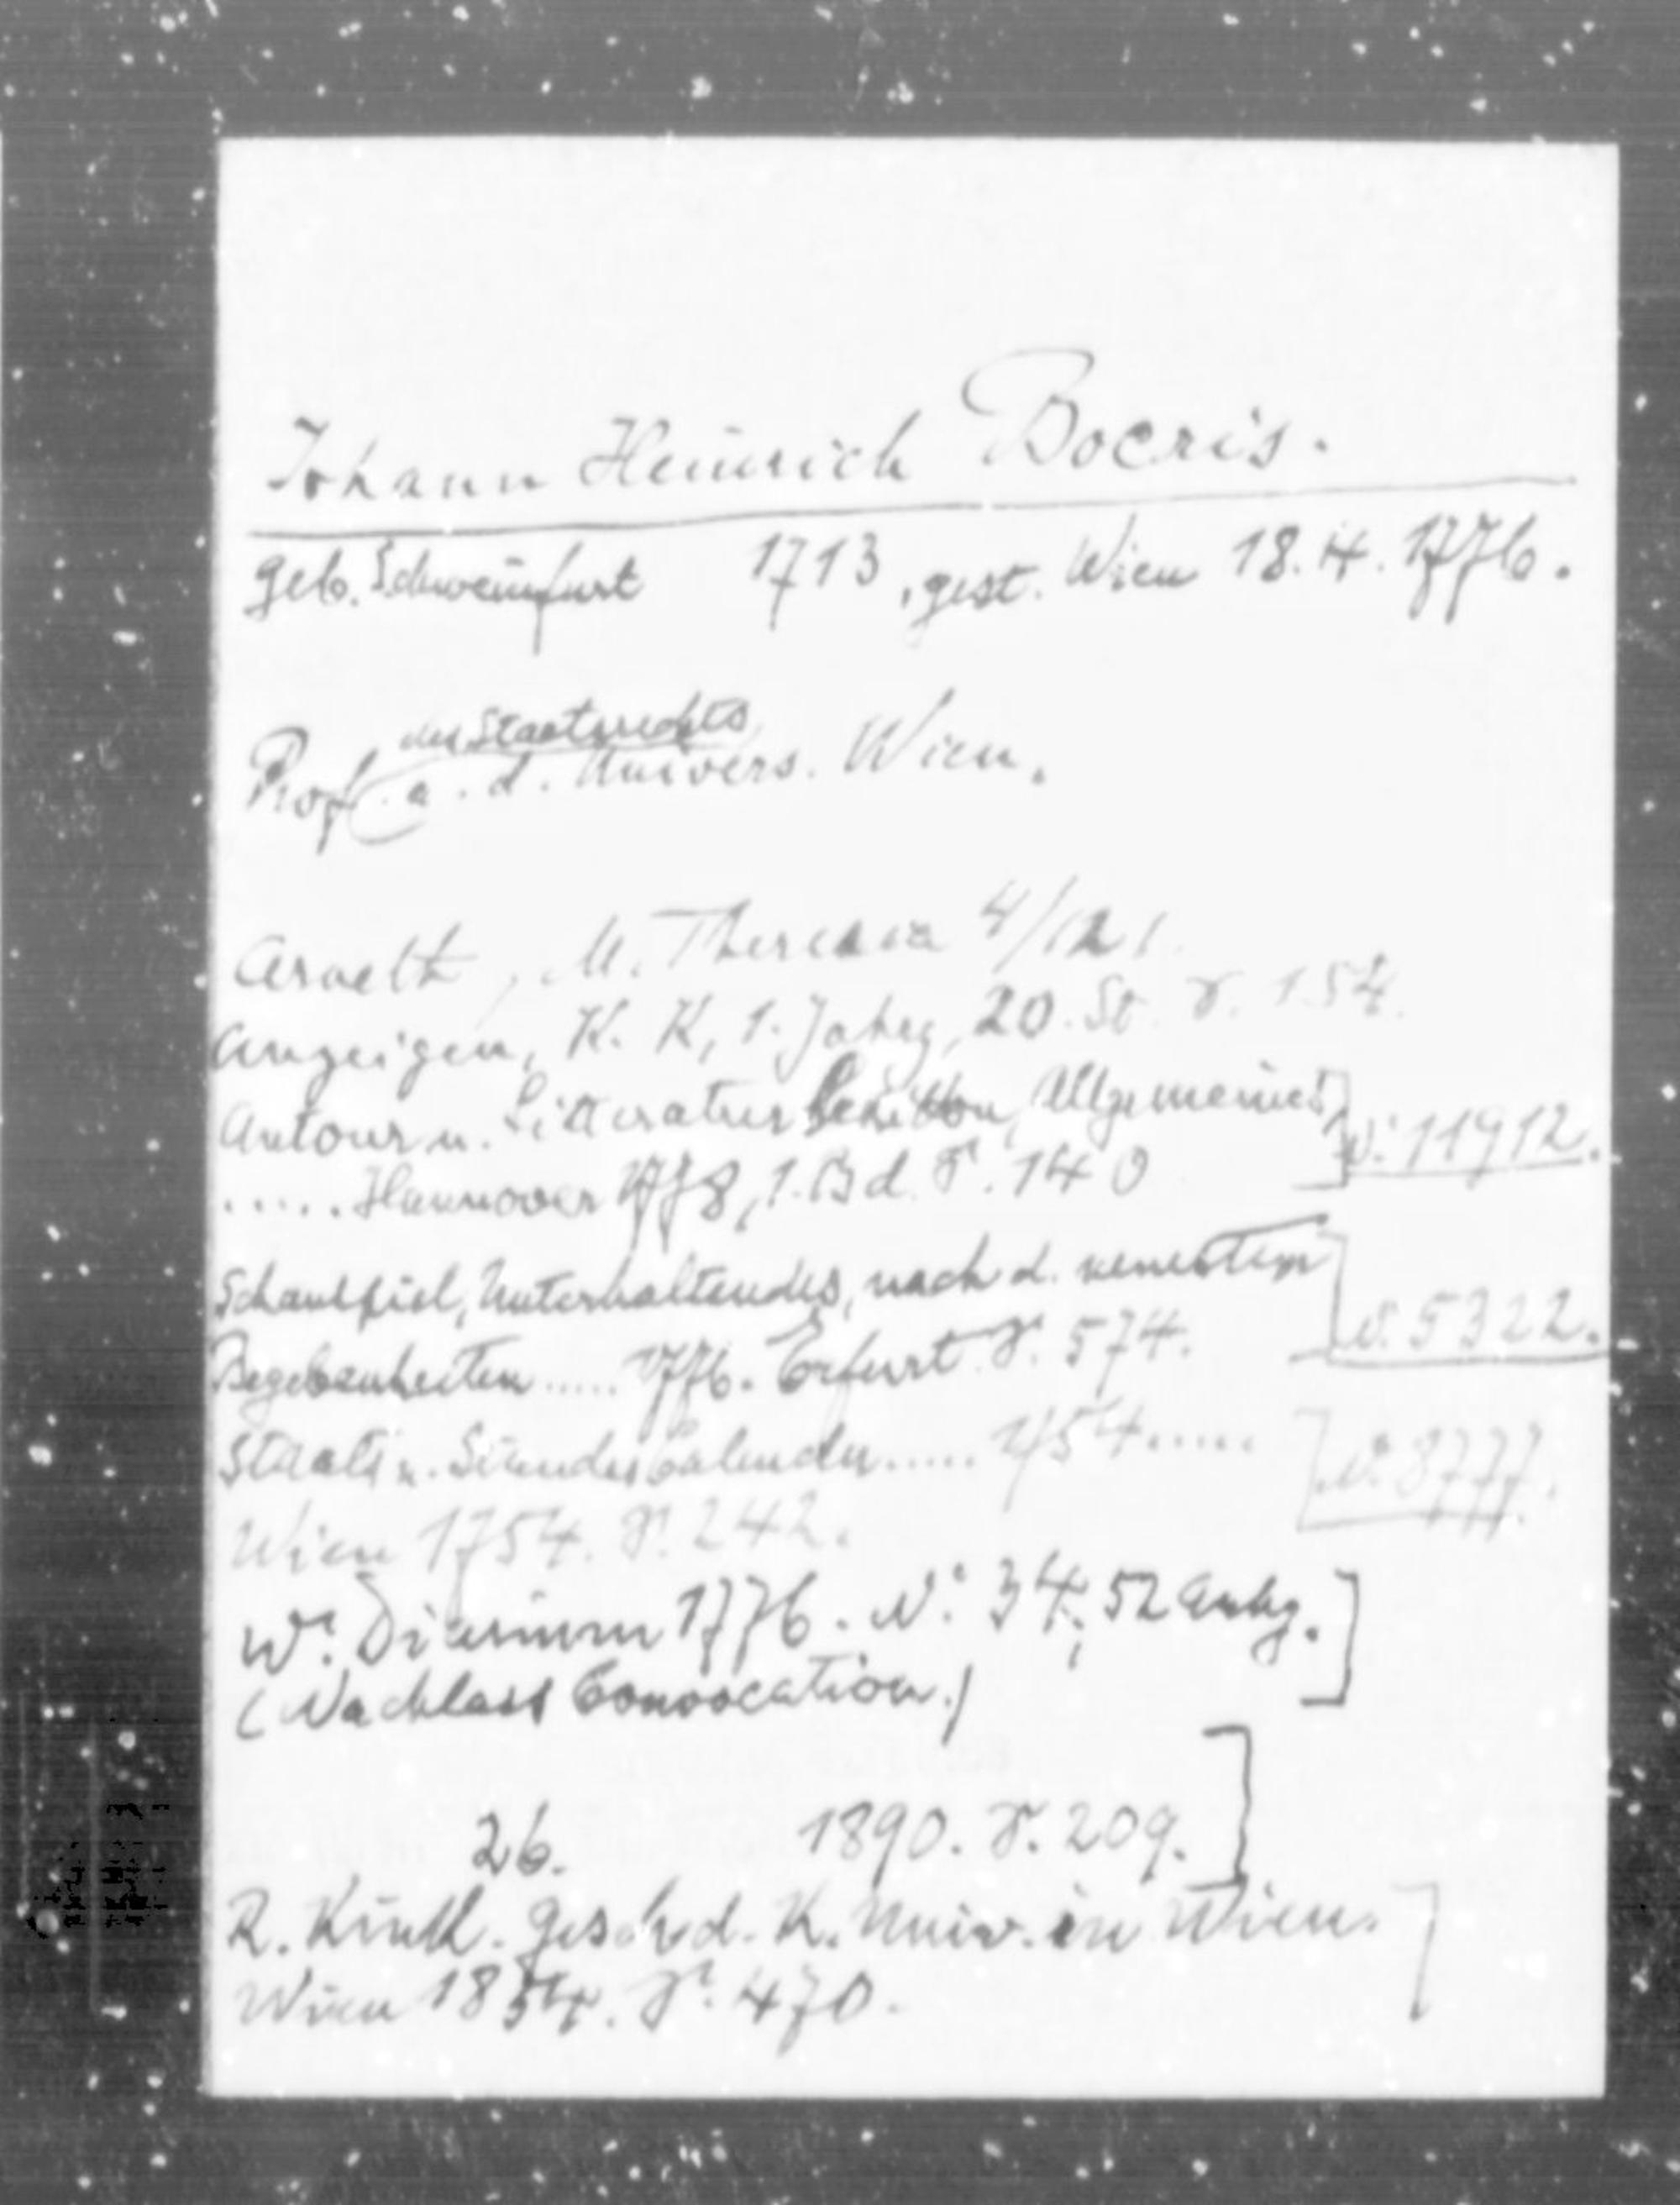 Johann Heinrich Bocris.
geb. Schweinfurt 1713, gest. Wien 18.4.1776.
des Staatsrechts
Prof. a. d. Univers. Wien.
Arneth, M. Theresia 4/121
Anzeigen, K. K., 1. Jahrg, 20. St. S. 154.
Autoren u. Litteratur Lexikon, Allgemeines
..... Hannover 1778, 1. Bd. S. 140
N: 11912.
Schauspiel, Unterhaltendes, nach d. neuesten
Begebenheiten ..... 1776. Erfurt S. 574.
N. 5322.
Staats u. Calender ..... 1754.....
Wien 1754. S. 242.
N. 8777.
Wr. Diarium 1776. Nr. 34, 52 Anhg.
(Nachlass Convocation.)
26. 1890. S. 209.
R. Kink. Gesch d. K. Univ. in Wien.
Wien 1854. S. 470.